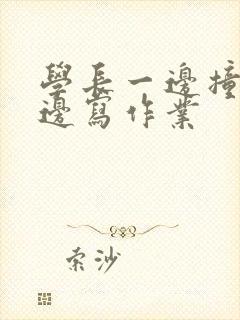 學長一邊撞
邊寫作業
索沙